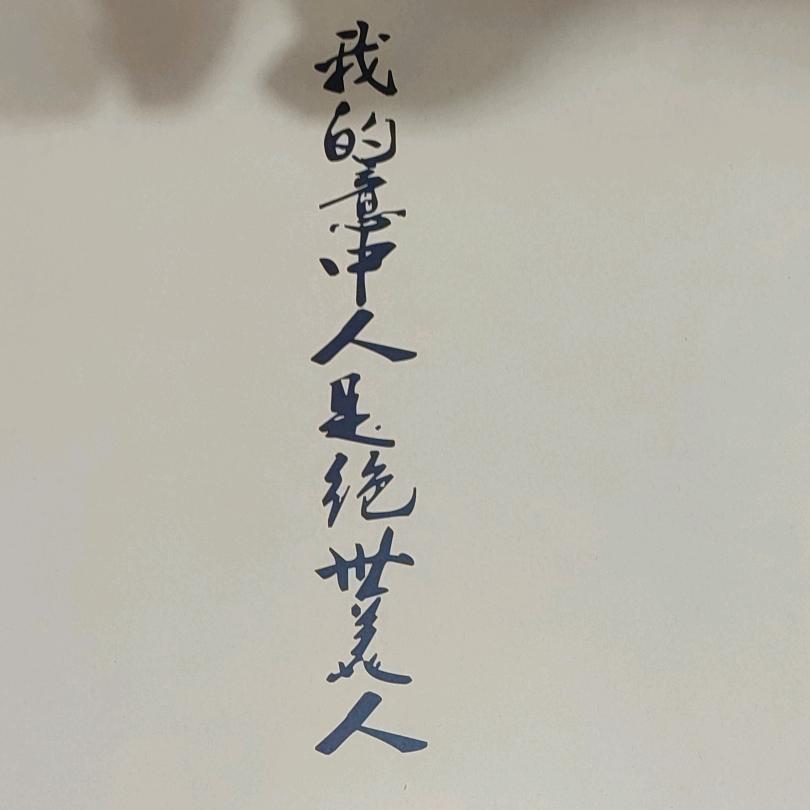 我的意中人是绝世美人